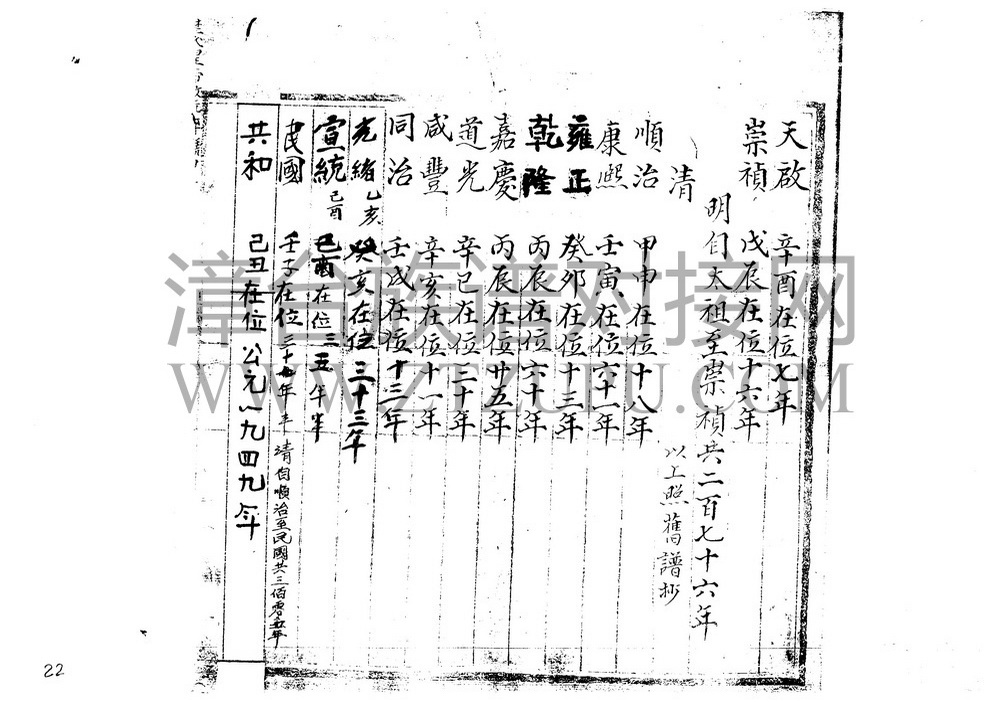 天啟 辛酉在位七年
崇禎 戊辰在位十六年
明自太祖至崇禎共二百七十六年
清 以上照舊譜抄
順治 甲申在位十八年
康熙 壬寅在位六十一年
雍正 癸卯在位十三年
乾隆 丙辰在位六十年
嘉慶 丙辰在位廿五年
道光 辛巳在位三十年
咸豐 辛亥在位十一年
同治 壬戌在位十三年
光緒 乙亥 癸亥在位三十三年
宣統 己酉 己酉在位三五年半
民國 壬子在位三十年 清自順治至民國共三佰零五年
共和 己丑在位公元一九四九年
漳台族谱对接网
WWW.ZTZUPU.COM
22